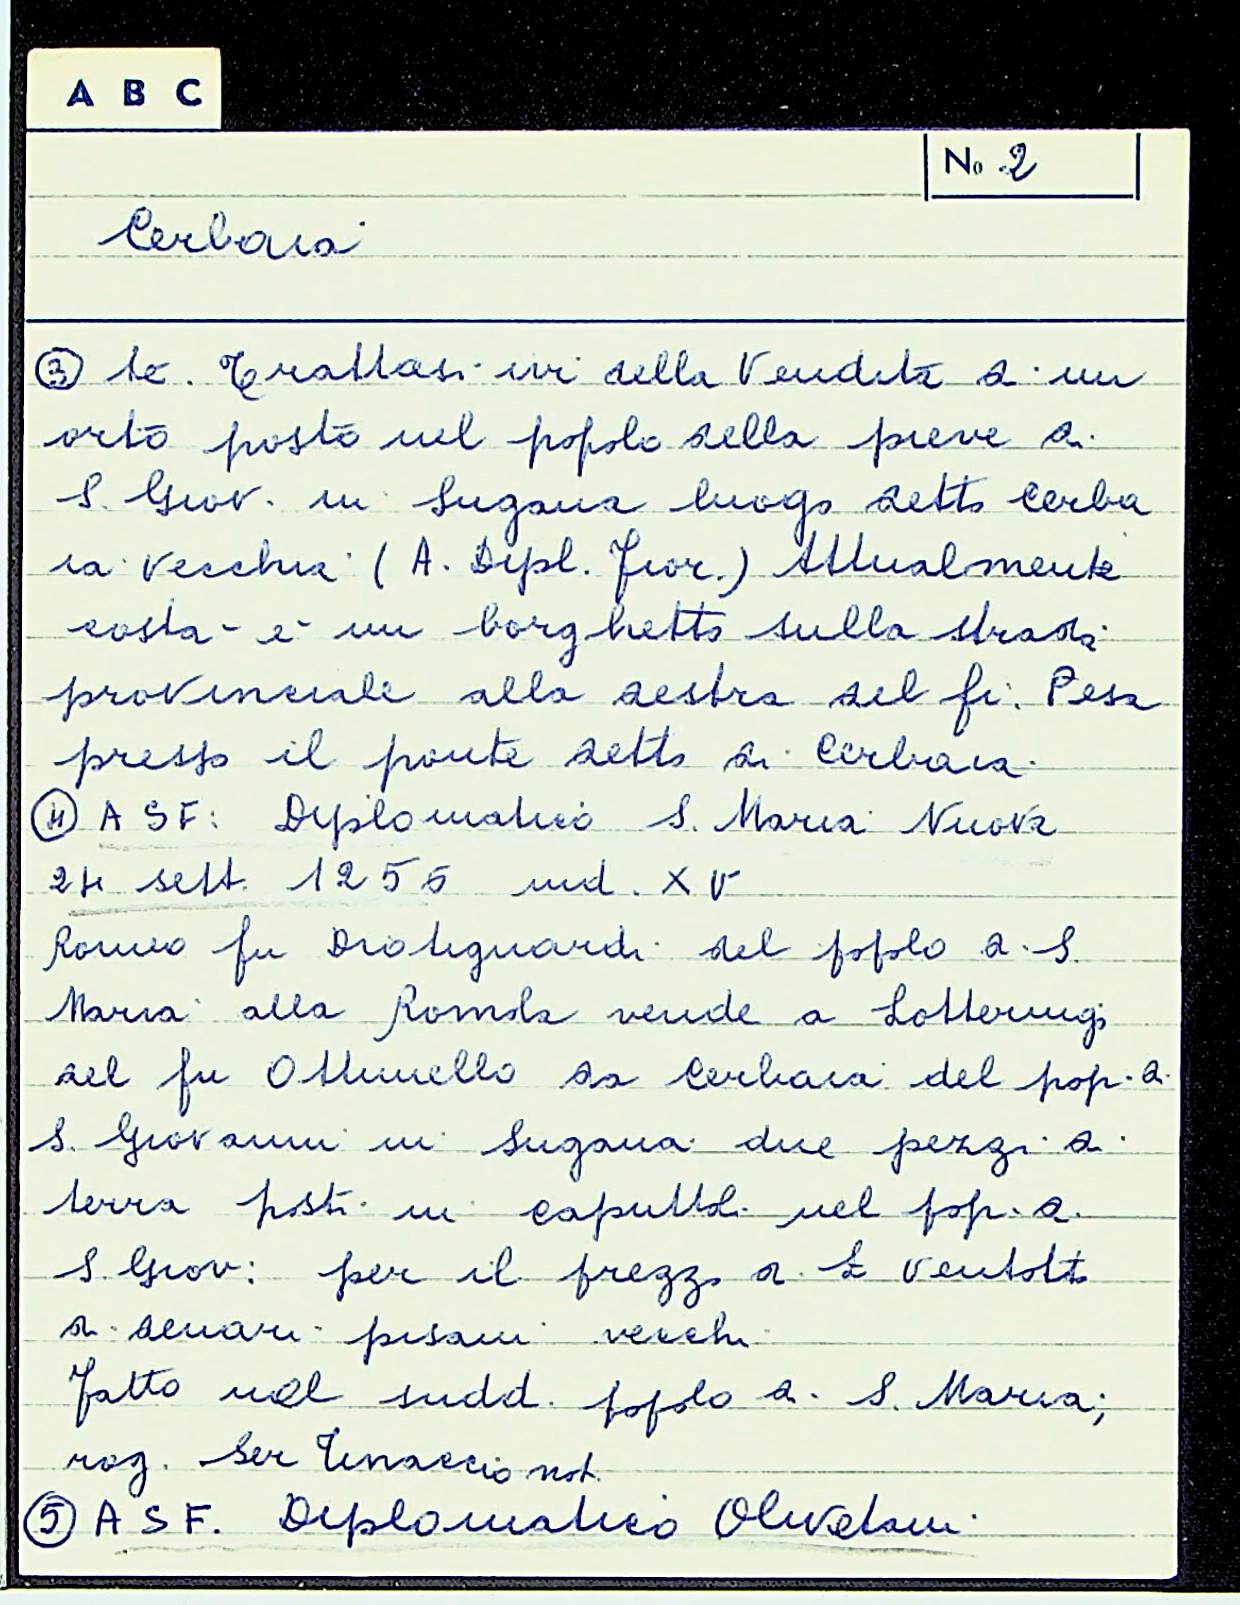 A B C
No 2
Cerbaia
③ te. Trattasi ivi della Vendita di un
orto posto nel popolo della pieve di
S. Giov. in Sugana luogo detto Cerba
ia Vecchia (A. Dipl. Fior.) Attualmente
costa- e- un borghetto sulla strada
provinciale alla destra del fi. Pesa
presso il ponte detto di Cerbaia.
④ A S F: Diplomatico S. Maria Nuova
24 sett. 1256 ind. XV
Romeo fu Diotiguardi del popolo di S.
Maria alla Romola vende a Lotteringi
del fu Ottinello da Cerbaia del pop. di
S. Giovanni in Sugana due pezzi di
terra posti in caputtoli nel pop. di
S. Giov: per il prezzo di £ Ventotto
di denari pisani vecchi
Fatto nel sudd. popolo di S. Maria;
rog. Ser Tinaccio not.
⑤ A S F. Diplomatico Olivetani